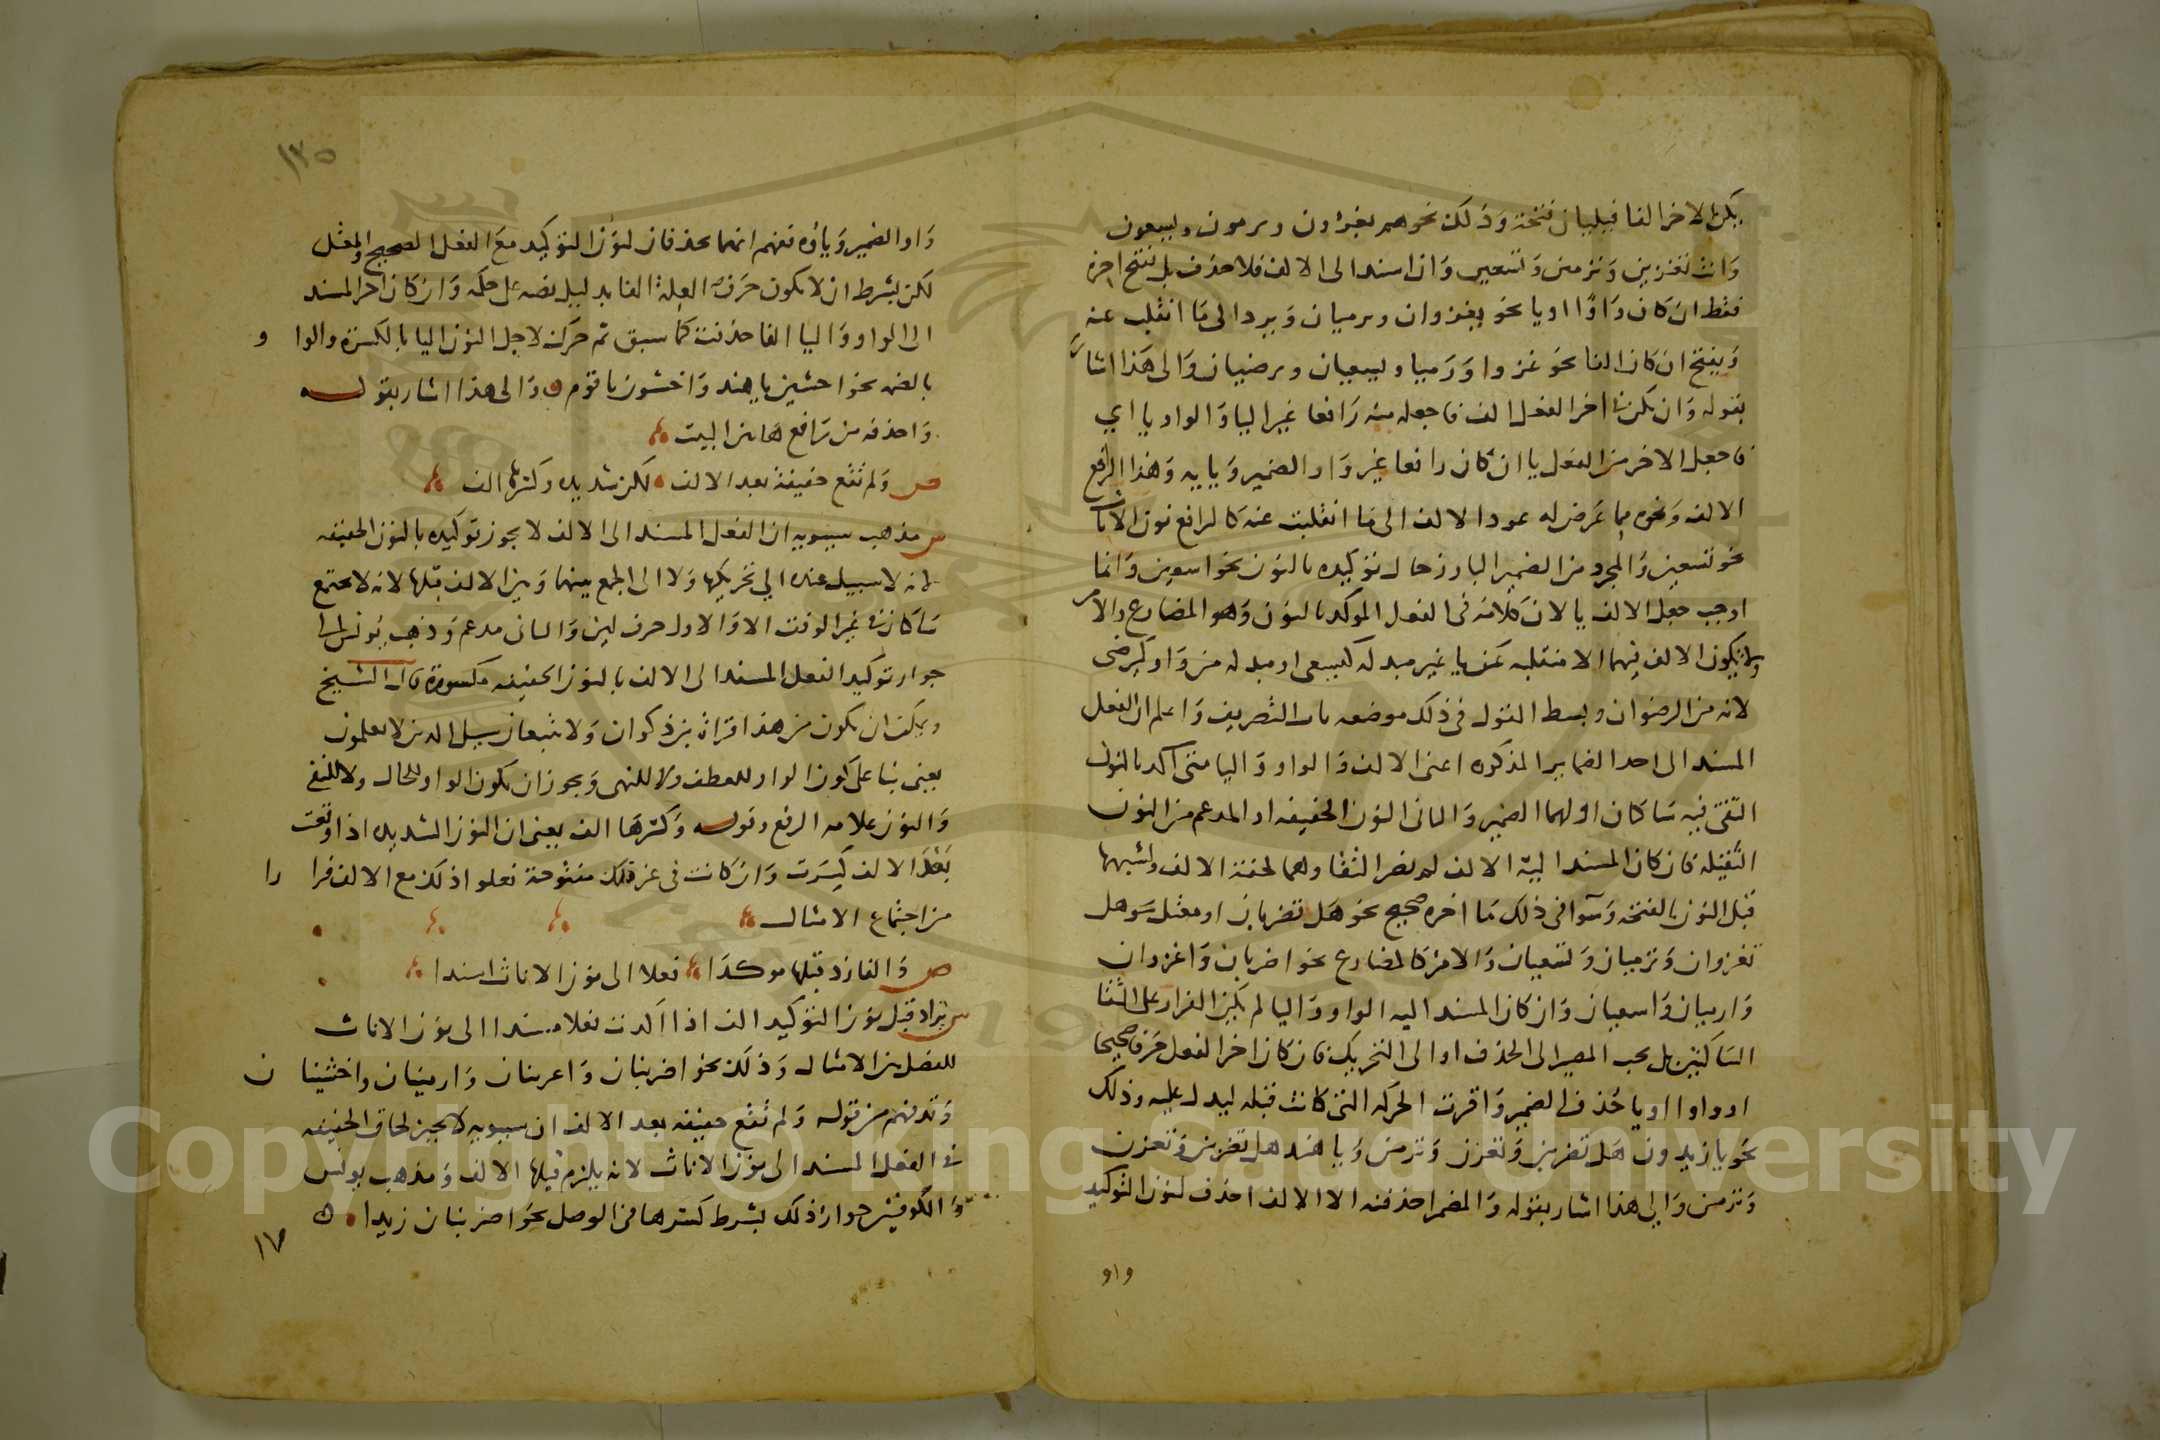 يكن الاخر الفا فيليان فتحة وذلك نحو هم يغزون ويرمون ويسعون
وانت تغزين وترمين وتسعين وان اسند الى الالف فلا حذف بل تفتح اخره
فقط ان كان واوا او يا نحو يغزوان ويرميان ويرد الى ما انقلب عنه
ويفتح ان كان الفا نحو غزوا ورميا ويسعيان ويرضيان والى هذا اشار
بقوله وان يكن في اخر الفعل الف فاجعله منه رافعا غير اليا والواو يا اي
فاجعل الاخر من الفعل يا ان كان رافعا غير واو الضمير ويايه وهذا الرافع
الالف ونحوه مما عرض له عود الالف الى ما انقلبت عنه كالرافع نون الاناث
نحو تسعين والمجرد من الضمير البارز حال توكيده بالنون نحو اسعين وانما
اوجب جعل الالف يا لان كلامه في الفعل الموكد بالنون وهو المضارع والامر
ولا يكون الالف فيهما الا منقلبه عن يا غير مبدله كيسعى او مبدله من واو كيرضى
لانه من الرضوان وبسط القول في ذلك موضعه باب التصريف واعلم ان الفعل
المسند الى احد الضماير المذكوره اعني الالف والواو واليا متى اكد بالنون
التقى فيه ساكنان اولهما الضمير والثاني النون الخفيفه او المدغم من النون
الثقيله فان كان المسند اليه الالف لم يضر التقاوهما لخفة الالف ولشبهها
قبل النون بالفتحه وسوا في ذلك ما اخره صحيح نحو هل تضربان او معتل نحو هل
تغزوان وترميان وتسعيان والامر كالمضارع نحو اضربان واغزوان
وارميان واسعيان وان كان المسند اليه الواو واليا لم يكن القرار على التقا
الساكنين بل يجب المصير الى الحذف او الى التحريك فان كان اخر الفعل حرفا صحيحا
او واوا او يا حذف الضمير واقرت الحركه التي كانت قبله ليدل عليه وذلك
نحو يا زيدون هل تضربن وتغزن وترمن ويا هند هل تضربن وتغزن
وترمن والى هذا اشار بقوله والمضمر احذفنه الا الالف احذف لنون التوكيد
واو
١٣٥
واو الضمير وياوه تفهم انهما يحذفان لنون التوكيد مع الفعل الصحيح والمعتل
لكن بشرط ان لا يكون حرف العلة الفا بدليل نصه على حكمه وان كان اخر المسند
الى الواو واليا الفا حذفت كما سبق ثم حركت لاجل النون اليا بالكسرة والواو
بالضم نحو اخشين يا هند واخشون يا قوم والى هذا اشار بقوله
واحذفه من رافع هاتين البيت
ص ولم تقع خفيفة بعد الالف لكن شديده وكسرها الف
س مذهب سيبويه ان الفعل المسند الى الالف لا يجوز توكيده بالنون الخفيفه
لانه لا سبيل عنده الى تحريكها ولا الى الجمع بينهما وبين الالف قبلها لانه لا يجتمع
ساكنان في غير الوقف الا والاول حرف لين والثاني مدغم وذهب يونس الى
جواز توكيد الفعل المسند الى الالف بالنون الخفيفه مكسورة قال الشيخ
ويمكن ان يكون من هذا قراة بن ذكوان ولا تتبعان سبيل الذين لا يعلمون
يعني بنا على كون الواو للعطف ولا للنهي ويجوز ان يكون الواو للحال ولا للنفي
والنون علامه الرفع وقوله وكسرها الف يعني ان النون الشديده اذا وقعت
بعد الالف كسرت وان كانت في غير ذلك مفتوحة فعلوا ذلك مع الالف فرارا
من اجتماع الامثال
ص والفا زد قبلها موكدا فعلا الى نون الاناث اسندا
س تزاد قبل نون التوكيد الف اذا اكدت فعلا مسندا الى نون الاناث
للفصل بين الامثال وذلك نحو اضربنان واغزينان وارمينان واخشينان
وقد فهم من قوله ولم تقع خفيفه بعد الالف ان سيبويه لا يجيز لحاق الخفيفه
في الفعل المسند الى نون الاناث لانه يلزم قبلها الالف ومذهب يونس
والكوفيين جواز ذلك بشرط كسرها في الوصل نحو اضربنان زيدا
١٧
Copyright © King Saud University